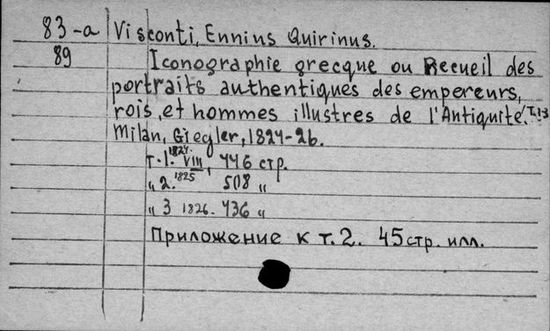 83-a Visconti, Ennius Quirinus.
89 Iconographie grecque ou Recueil des
portraits authentiques des empereurs,
rois, et hommes illustres de l'Antiquité. T.1-3
Milan, Giegler, 1824-26.
т.1. 1824. VIII, 446 стр.
„ 2. 1825 508 „
„ 3 1826. 436 „
Приложение к т. 2. 45 стр. илл.